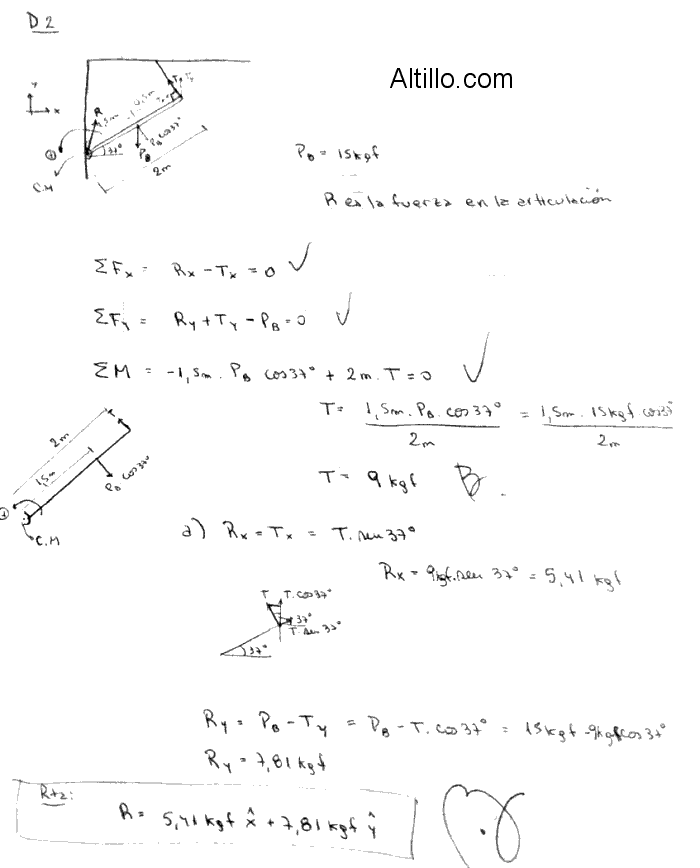 D2
Altillo.com
Y
X
R
1,5m
0,5m
Ty
37°
P_B
P_B cos37°
2m
C.M
P_B = 15kgf
R es la fuerza en la articulación
ΣFx = Rx - Tx = 0 ✓
ΣFy = Ry + Ty - P_B = 0 ✓
ΣM = -1,5m. P_B cos37° + 2m. T = 0 ✓
T = 1,5m. P_B. cos37° / 2m = 1,5m. 15kgf cos37° / 2m
T = 9 kgf B.
2m
1,5m
T
P_B cos37°
C.M
a) Rx = Tx = T. sen 37°
Rx = 9kgf. sen 37° = 5,41 kgf
T T. cos37°
37°
T. sen 37°
37°
Ry = P_B - Ty = P_B - T. cos37° = 15kgf - 9kgf cos37°
Ry = 7,81 kgf
Rta:
R = 5,41 kgf x̂ + 7,81 kgf ŷ